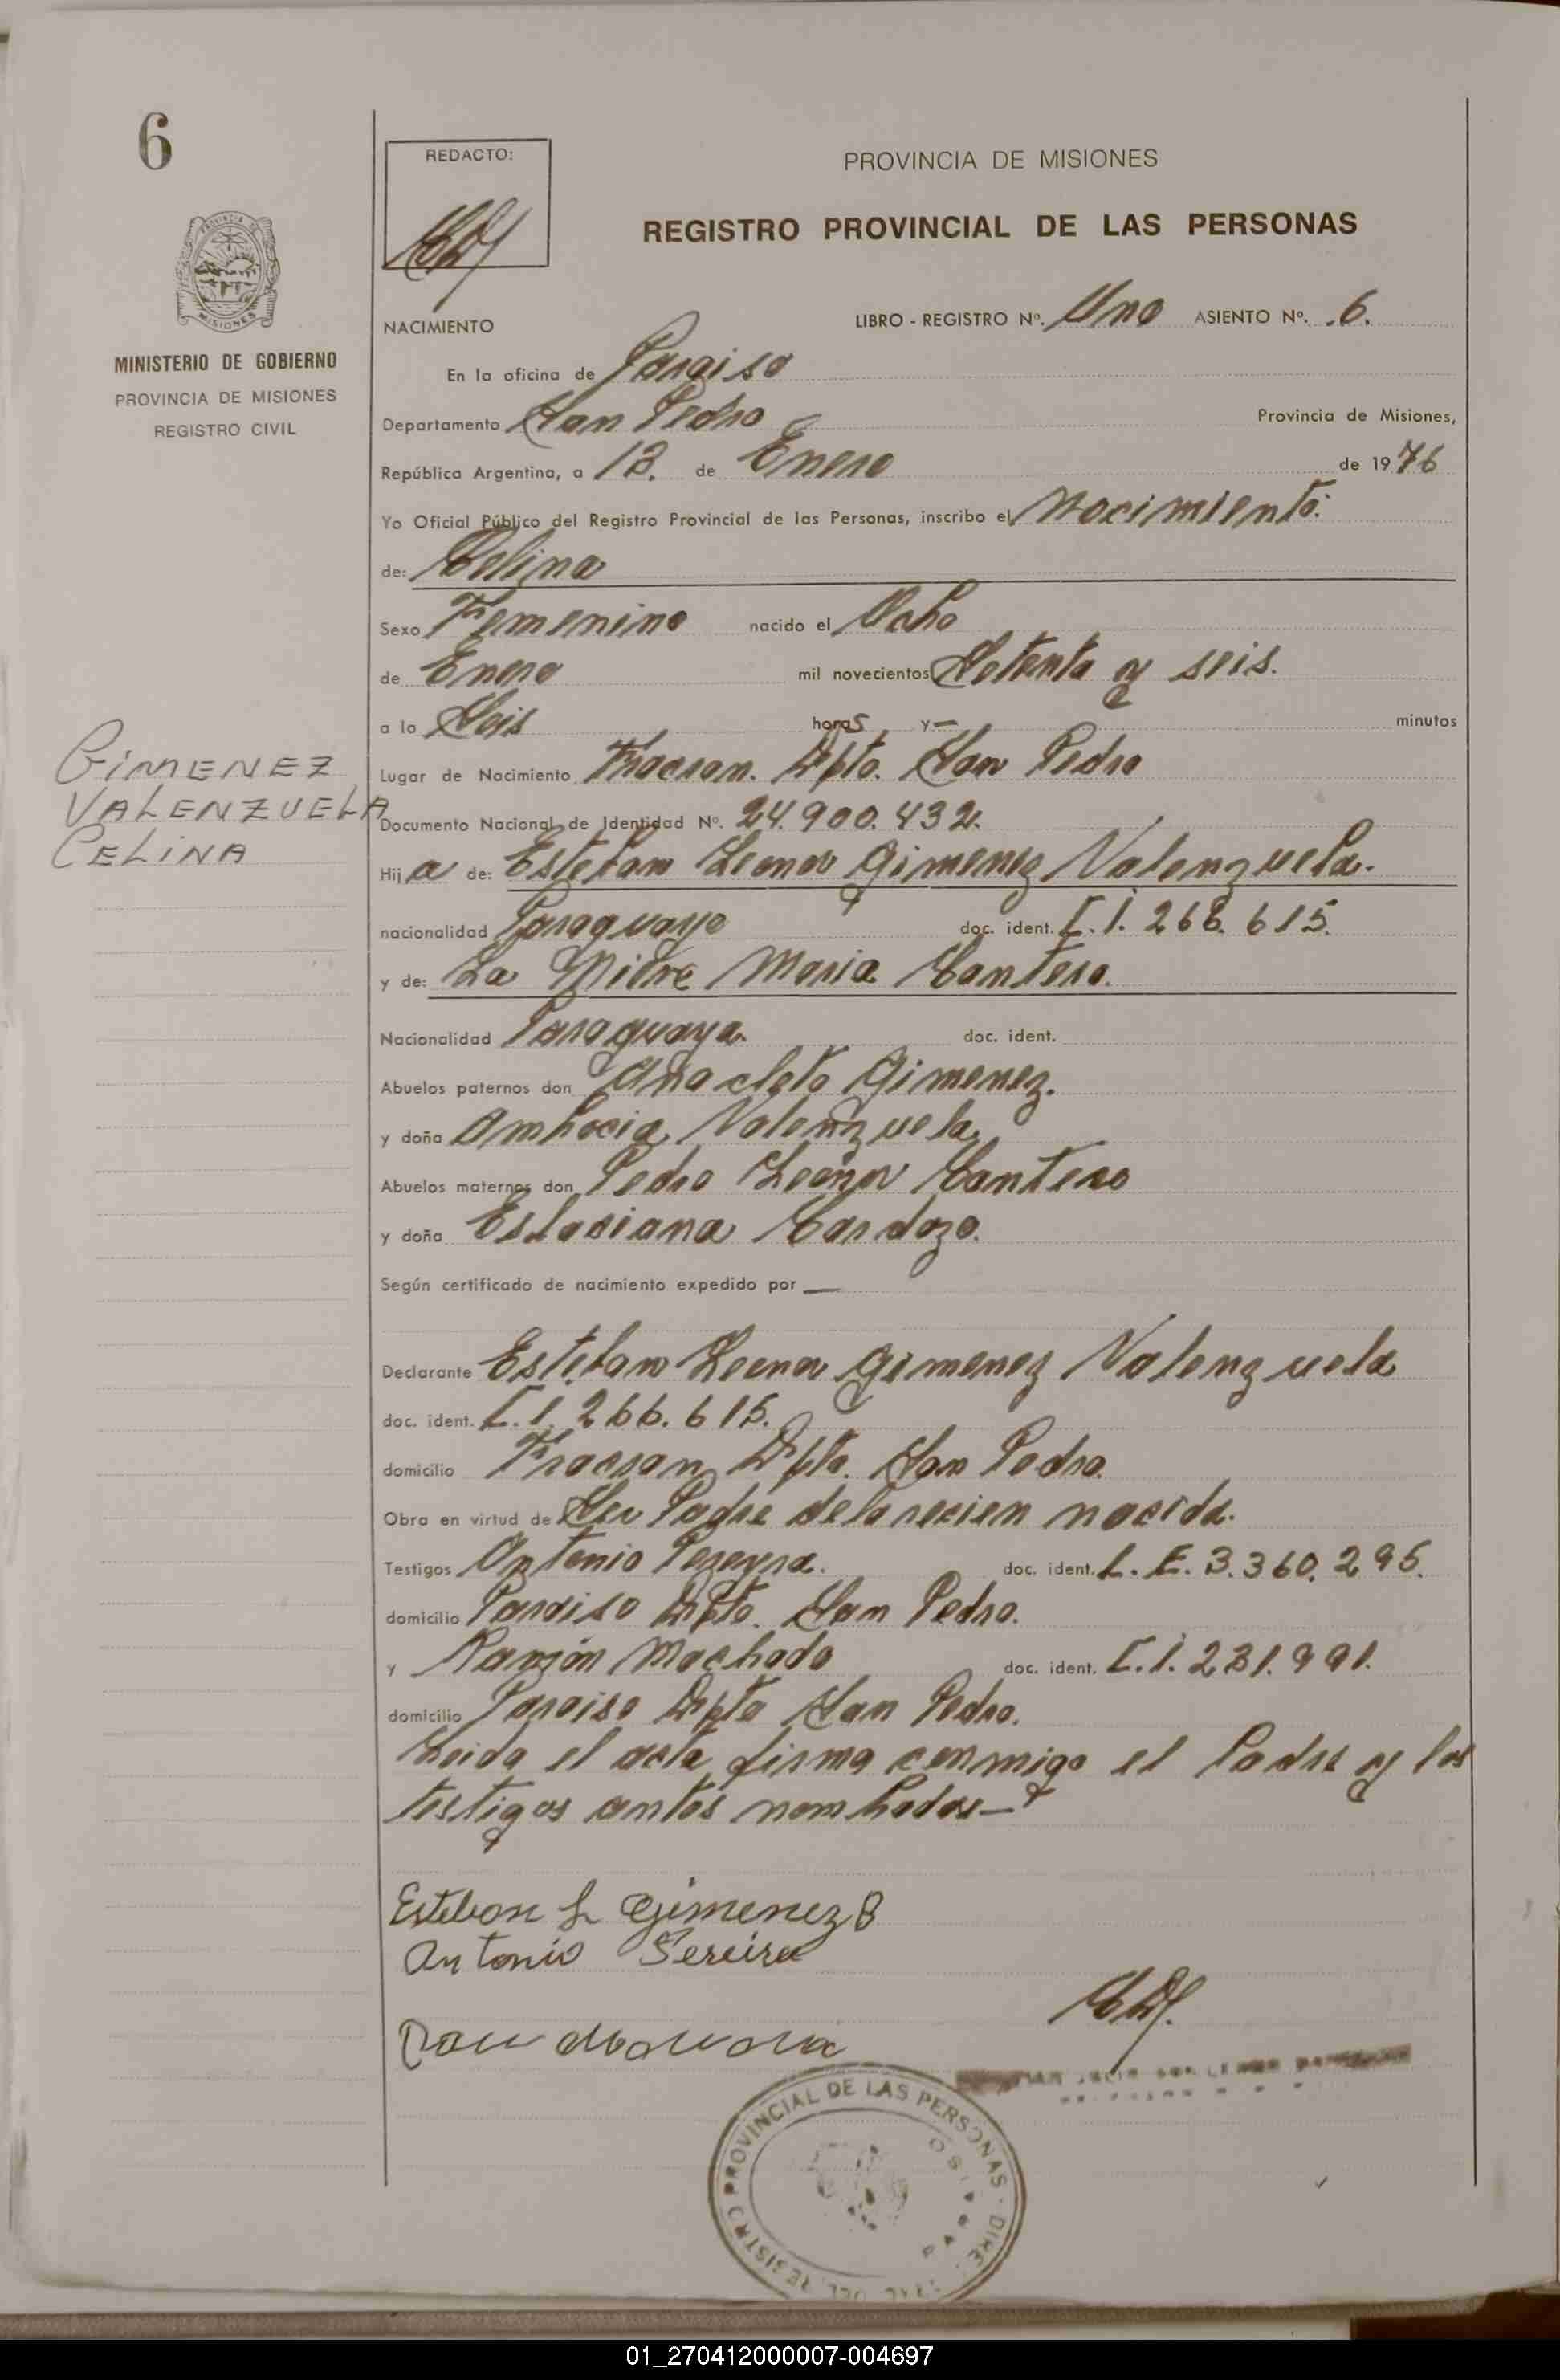 6
REDACTO:
PROVINCIA DE MISIONES
REGISTRO PROVINCIAL DE LAS PERSONAS
PROVINCIA
MISIONES
MINISTERIO DE GOBIERNO
PROVINCIA DE MISIONES
REGISTRO CIVIL
NACIMIENTO
LIBRO - REGISTRO Nº. Uno ASIENTO Nº. 6.
En la oficina de Paraiso
Departamento San Pedro Provincia de Misiones,
República Argentina, a 13. de Enero de 1976
Yo Oficial Público del Registro Provincial de las Personas, inscribo el Nacimiento:
de: Celina
Sexo Femenino nacido el Ocho
de Enero mil novecientos Setenta y seis.
a la Seis horas y — minutos
GIMENEZ
VALENZUELA
CELINA
Lugar de Nacimiento Fracran. Dpto. San Pedro
Documento Nacional de Identidad Nº. 24.900.432.
Hija de: Esteban Leonor Gimenez Valenzuela.
nacionalidad Paraguayo doc. ident. C.I. 266.615.
y de: La Maria Cantero.
Nacionalidad Paraguaya. doc. ident.
Abuelos paternos don Anacleto Gimenez.
y doña Ambrocia Valenzuela.
Abuelos maternos don Pedro Leonor Cantero
y doña Cardozo.
Según certificado de nacimiento expedido por —
Declarante Esteban Leonor Gimenez Valenzuela
doc. ident. C.I. 266.615.
domicilio Fracran Dpto. San Pedro.
Obra en virtud de Ser Padre de la recien nacida.
Testigos Antonio Pereyra. doc. ident. L.E. 3.360.295.
domicilio Paraiso Dpto. San Pedro.
y Ramón Machado doc. ident. C.I. 231.991.
domicilio Paraiso Dpto San Pedro.
Leida el acta firma conmigo el Padre y los
testigos antes nombrados—
Esteban L Gimenez
Antonio Pereira
REGISTRO PROVINCIAL DE LAS PERSONAS
PARAISO
01_270412000007-004697